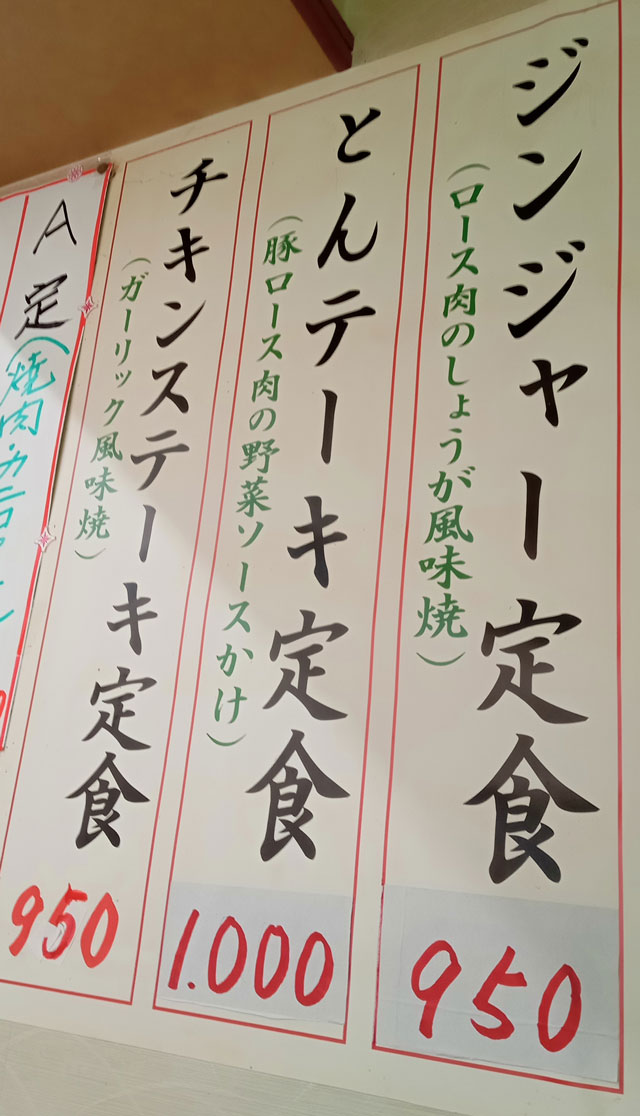 ジンジャー定食
(ロース肉のしょうが風味焼)
950
とんテーキ定食
(豚ロース肉の野菜ソースかけ)
1.000
チキンステーキ定食
(ガーリック風味焼)
950
A定
(焼肉・カニコ